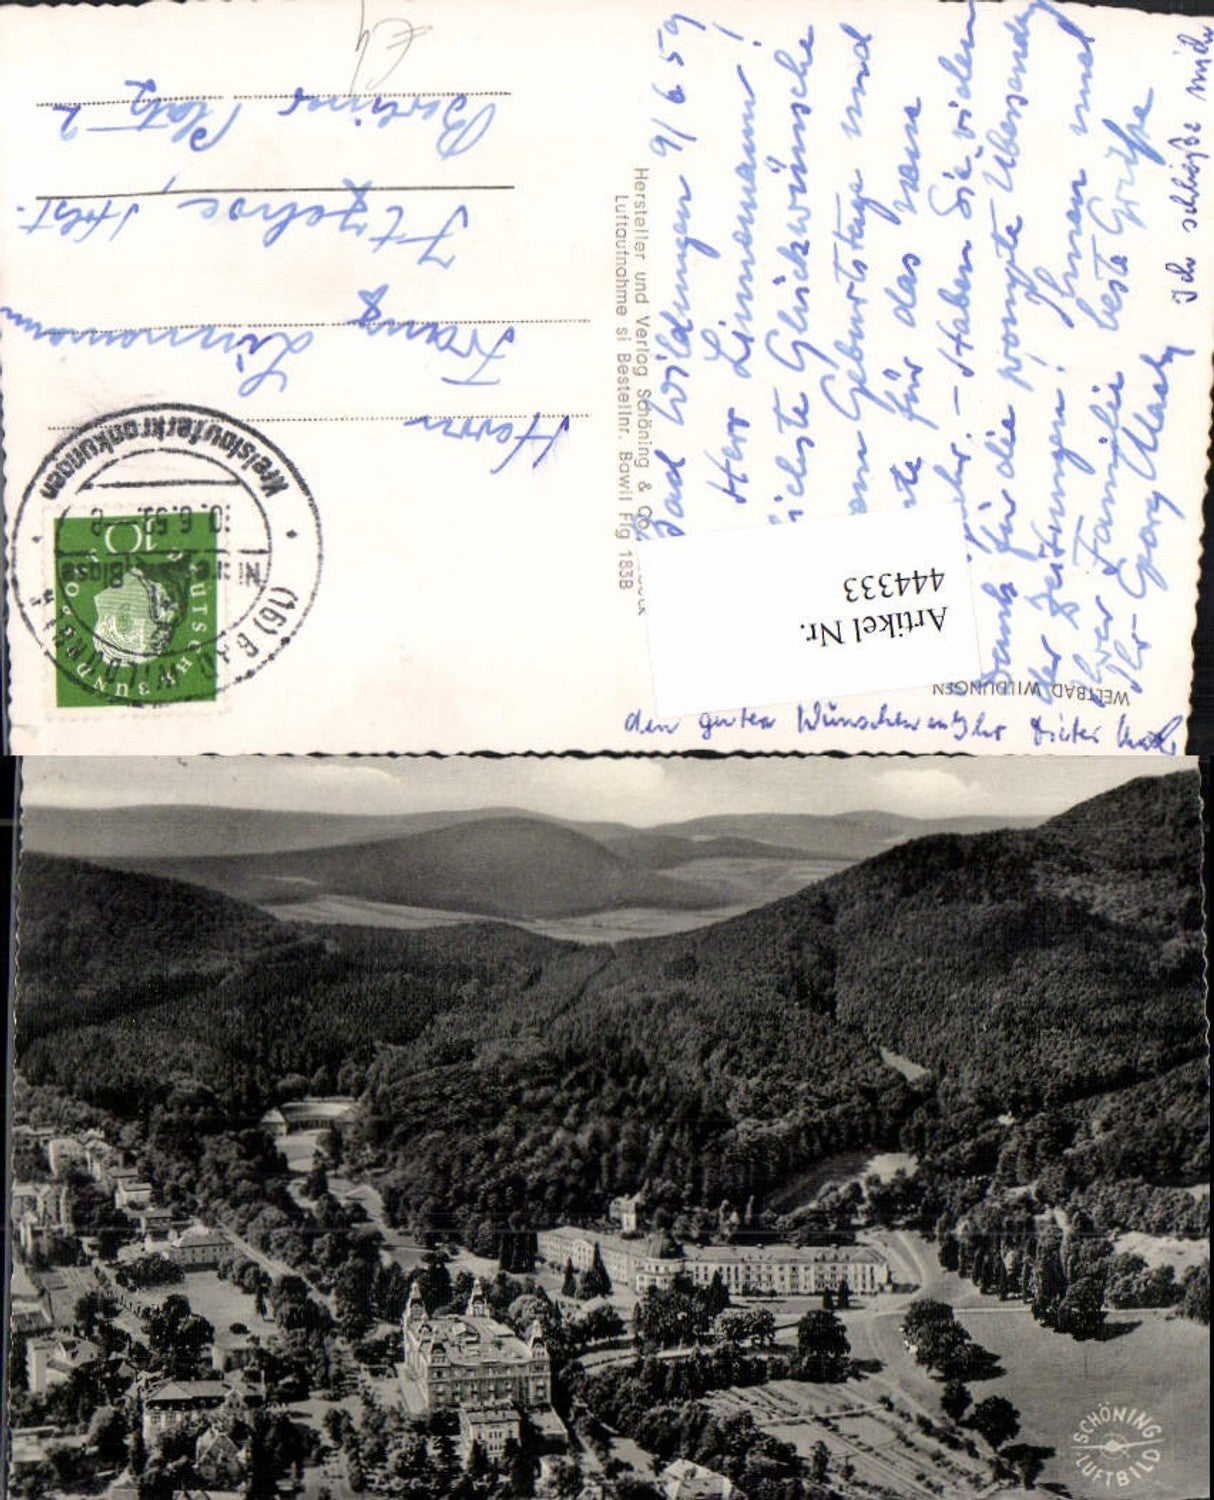 Bad Wildungen 9/6 59
Herr Linnemann!
Glückwünsche
Geburtstage und
für das
Haben Sie vielen
Dank für die prompte Übersendung
der Zeitungen! Ihnen und
Ihrer Familie beste Grüße
Ihr Georg
Ich schließe mich
den guten Wünschen an Ihr Dieter
WELTBAD WILDUNGEN
Hersteller und Verlag Schöning & Co.
Luftaufnahme si Bestellnr. Bawil Flg 183B
Artikel Nr.
444333
Herrn
Franz Linnemann
Itzehoe, Holst.
Berliner Platz 2
(16) BAD WILDUNGEN
10.6.59. - 8
Niere Blase
Kreislauferkrankungen
10
DEUTSCHE BUNDESPOST
SCHÖNING
LUFTBILD